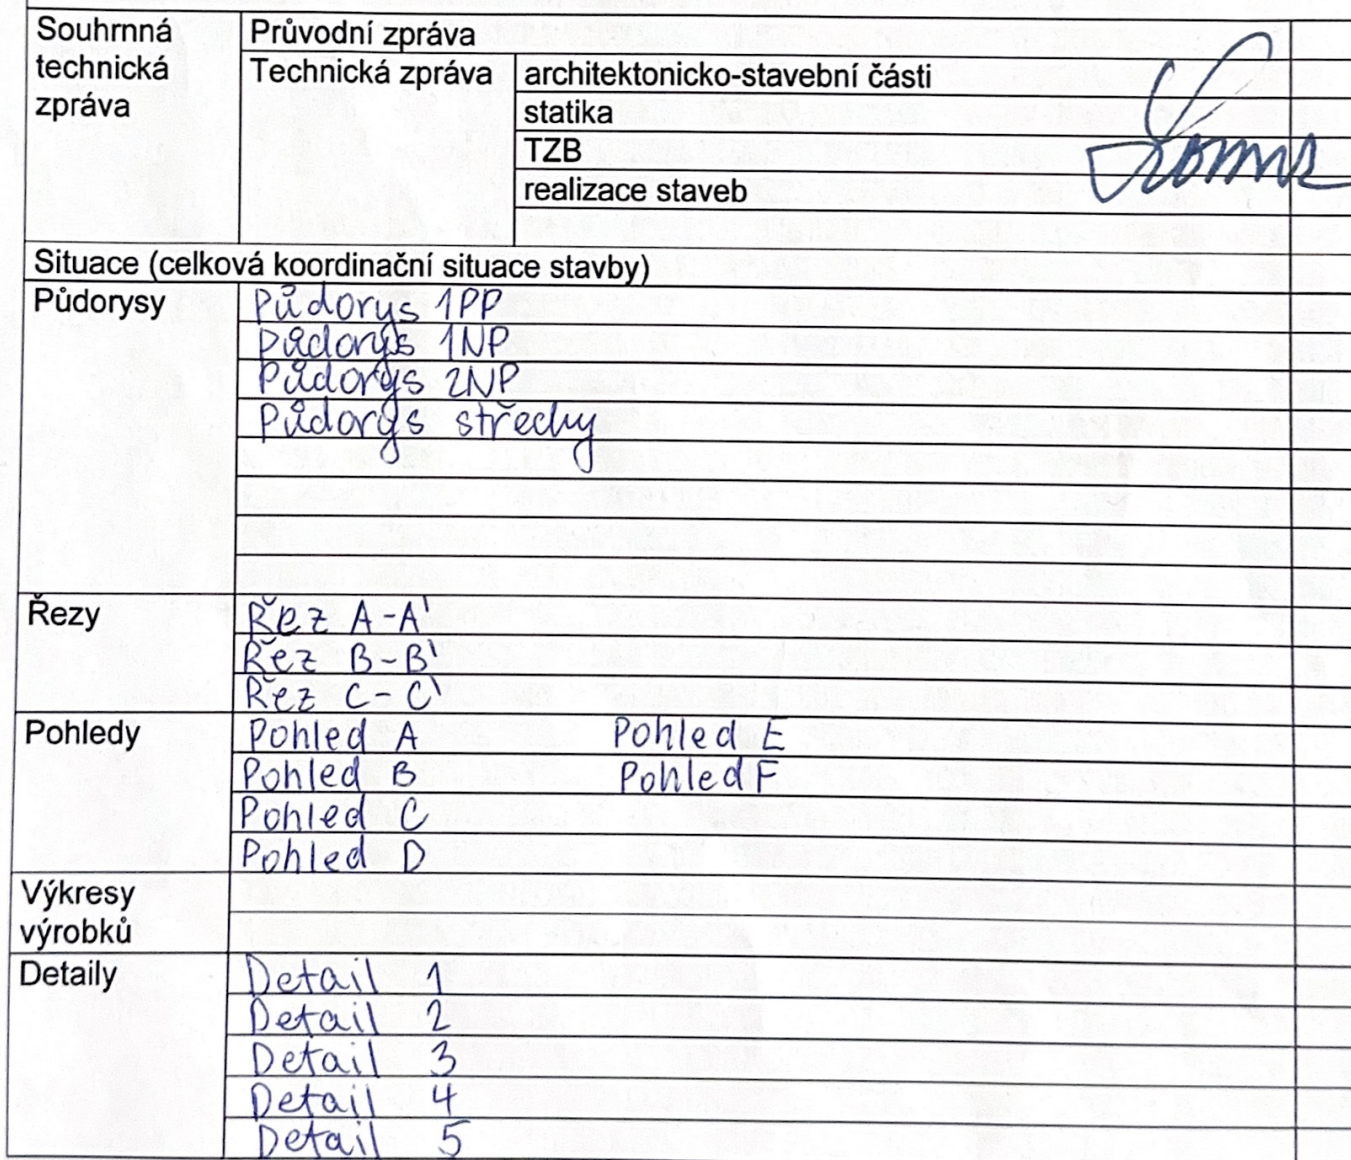 Souhrnná technická zpráva
Průvodní zpráva
Technická zpráva
architektonicko-stavební části
statika
TZB
realizace staveb
Situace (celková koordinační situace stavby)
Půdorysy
Půdorys 1PP
Půdorys 1NP
Půdorys 2NP
Půdorys střechy
Řezy
Řez A-A'
Řez B-B'
Řez C-C'
Pohledy
Pohled A
Pohled E
Pohled B
Pohled F
Pohled C
Pohled D
Výkresy výrobků
Detaily
Detail 1
Detail 2
Detail 3
Detail 4
Detail 5